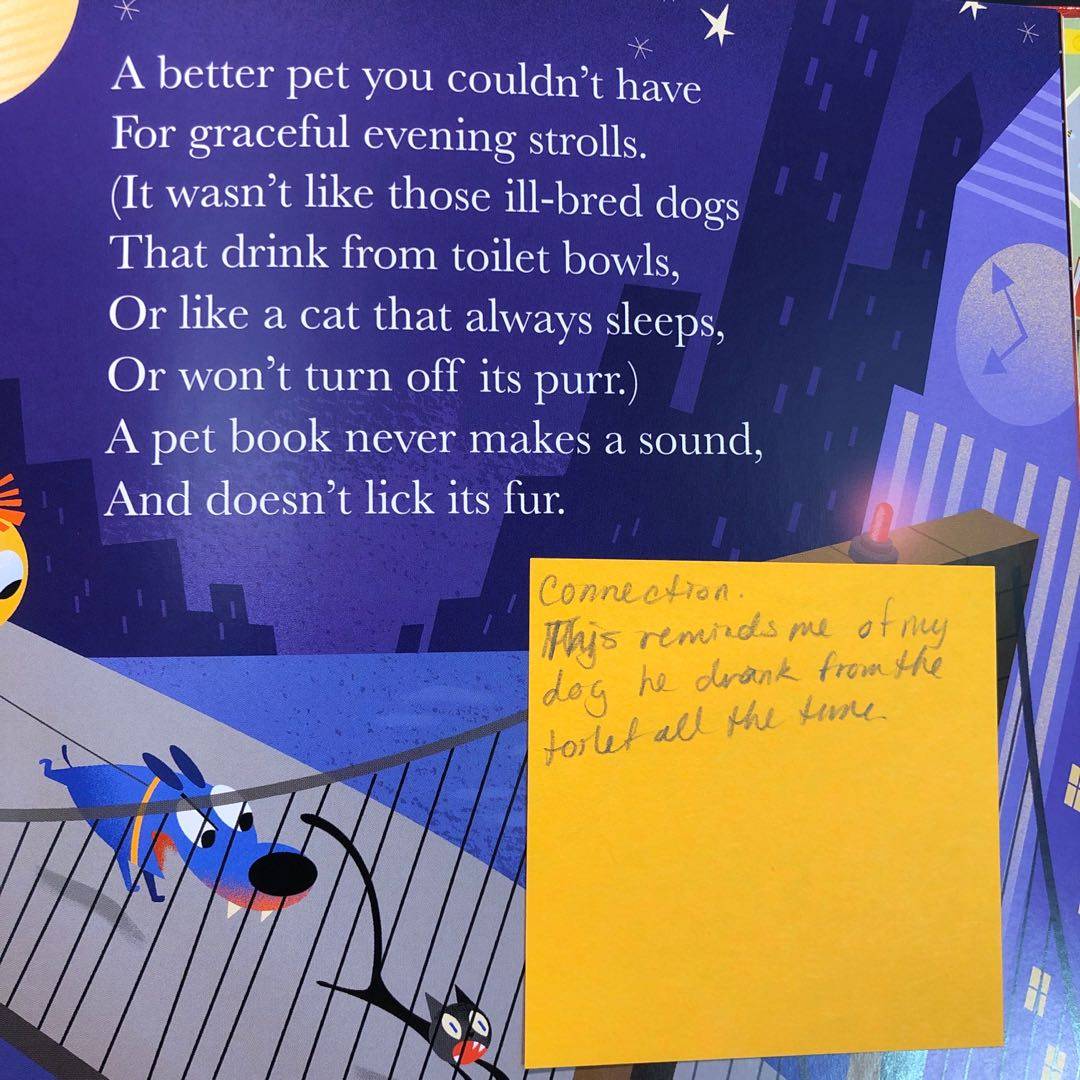 A better pet you couldn't have
For graceful evening strolls.
(It wasn't like those ill-bred dogs
That drink from toilet bowls,
Or like a cat that always sleeps,
Or won't turn off its purr.)
A pet book never makes a sound,
And doesn't lick its fur.
Connection.
This reminds me of my
dog he drank from the
toilet all the time.